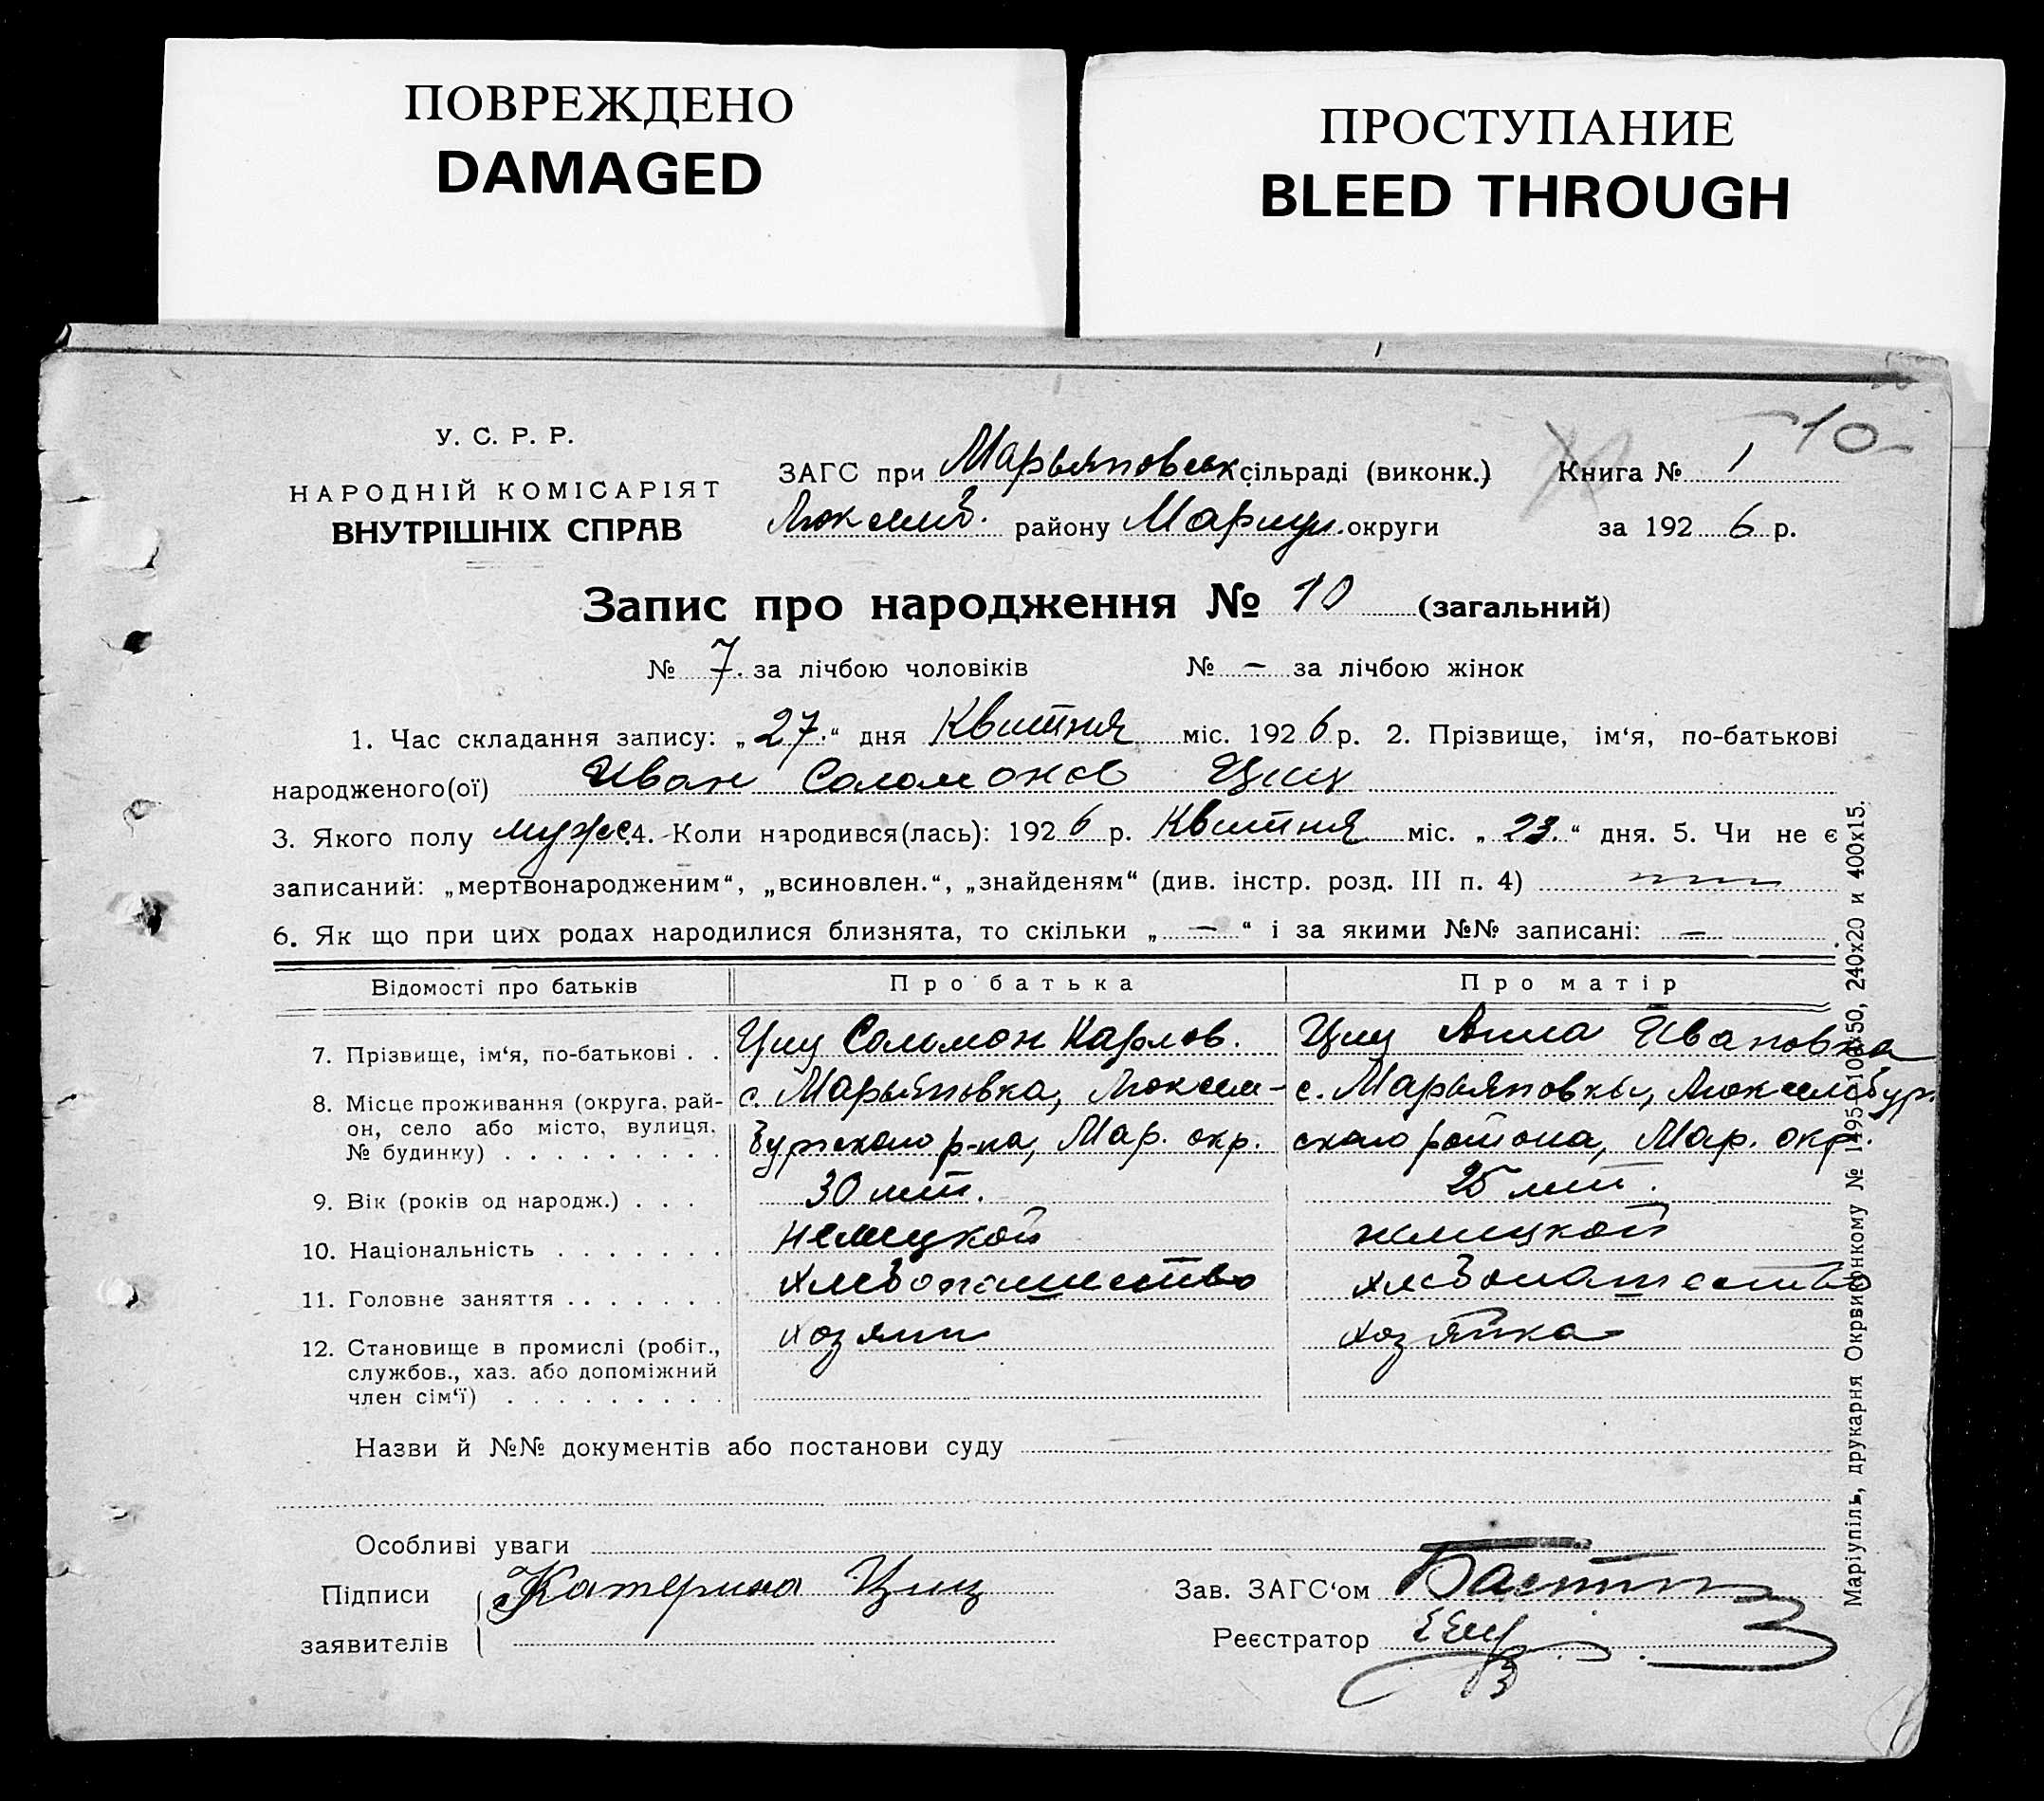 ПОВРЕЖДЕНО
DAMAGED
ПРОСТУПАНИЕ
BLEED THROUGH
-10-
У. С. Р. Р.
НАРОДНІЙ КОМІСАРІЯТ
ВНУТРІШНІХ СПРАВ
ЗАГС при Марьяновск сільраді (виконк.) Книга № 1
Люксемб. району Мариуп. округи за 1926 р.
Запис про народження № 10 (загальний)
№ 7. за лічбою чоловіків № – за лічбою жінок
1. Час складання запису: „27.“ дня Квитня міс. 1926 р. 2. Прізвище, ім‘я, по-батькові
народженого(ої) Иван Соломонов Циц
3. Якого полу мужс. 4. Коли народився(лась): 1926 р. Квитня міс. „23.“ дня. 5. Чи не є
записаний: „мертвонародженим“, „всиновлен.“, „знайденям“ (див. інстр. розд. III п. 4)
6. Як що при цих родах народилися близнята, то скільки „ – “ і за якими №№ записані: –
Відомості про батьків Про батька Про матір
7. Прізвище, ім‘я, по-батькові . . Циц Соломон Карлов. Циц Анна Ивановна
8. Місце проживання (округа, рай- с. Марьяновка, Люксем- с. Марьяновка, Люксембур
он, село або місто, вулиця,
№ будинку) . . . . . . . . . бургского р-на, Мар. окр. ского района, Мар. окр.
9. Вік (років од народж.) . . . 30 лет. 25 лет.
10. Національність . . . . . . . немецкой немецкой
11. Головне заняття . . . . . . . хлебопашество хлебопашество
12. Становище в промислі (робіт., хозяин хозяйка
службов., хаз. або допоміжний
член сім‘ї) . . . . . . . . .
Назви й №№ документів або постанови суду
Особливі уваги
Підписи Катерина Циц Зав. ЗАГС‘ом
заявителів Реєстратор
Маріупіль, друкарня Окрвиконкому № 1495—100×50, 240х20 и 400х15.